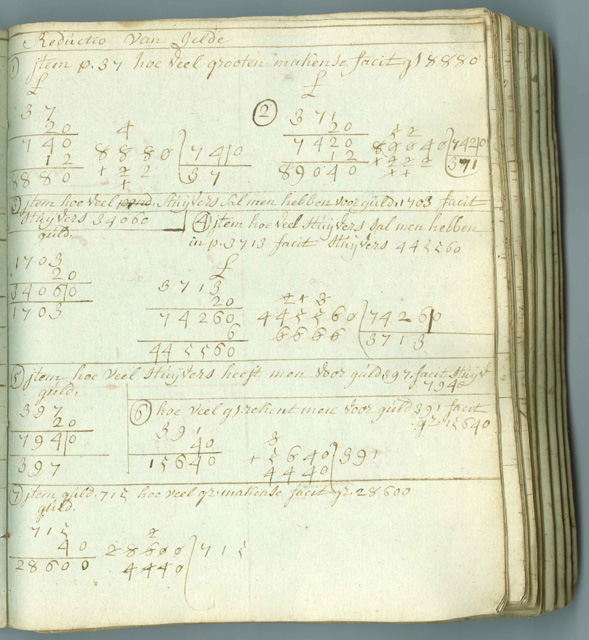 Reductio Van Gelde
1 jtem p. 37 hoe veel grooten makense facit gl 8880
£
37
20
740
12
8880
4
8880 | 740
+22 | 37
+
2
£
371
20
7420
12
89040
52
89040 | 7420
+222 | 371
++
3 jtem hoe veel stuÿvers sal men hebben voor guld. 1703 facit
stuÿvers 34060
guld.
1703
20
34060
1703
4 jtem hoe veel stuÿvers sal men hebben
in p. 3713 facit stuÿvers 445560
£
3713
20
74260
6
445560
2+3
445560 | 74260
6666 | 3713
5 jtem hoe veel stuÿvers heeft men voor guld 397. facit stuÿv
7940
guld.
397
20
7940
397
6 hoe veel gr rekent men voor guld 391 facit
gr 15640
391
40
15640
3
+5640 | 391
4440
7 jtem guld. 715 hoe veel gr. makense facit gr. 28600
guld.
715
40
28600
2
28600 | 715
4440